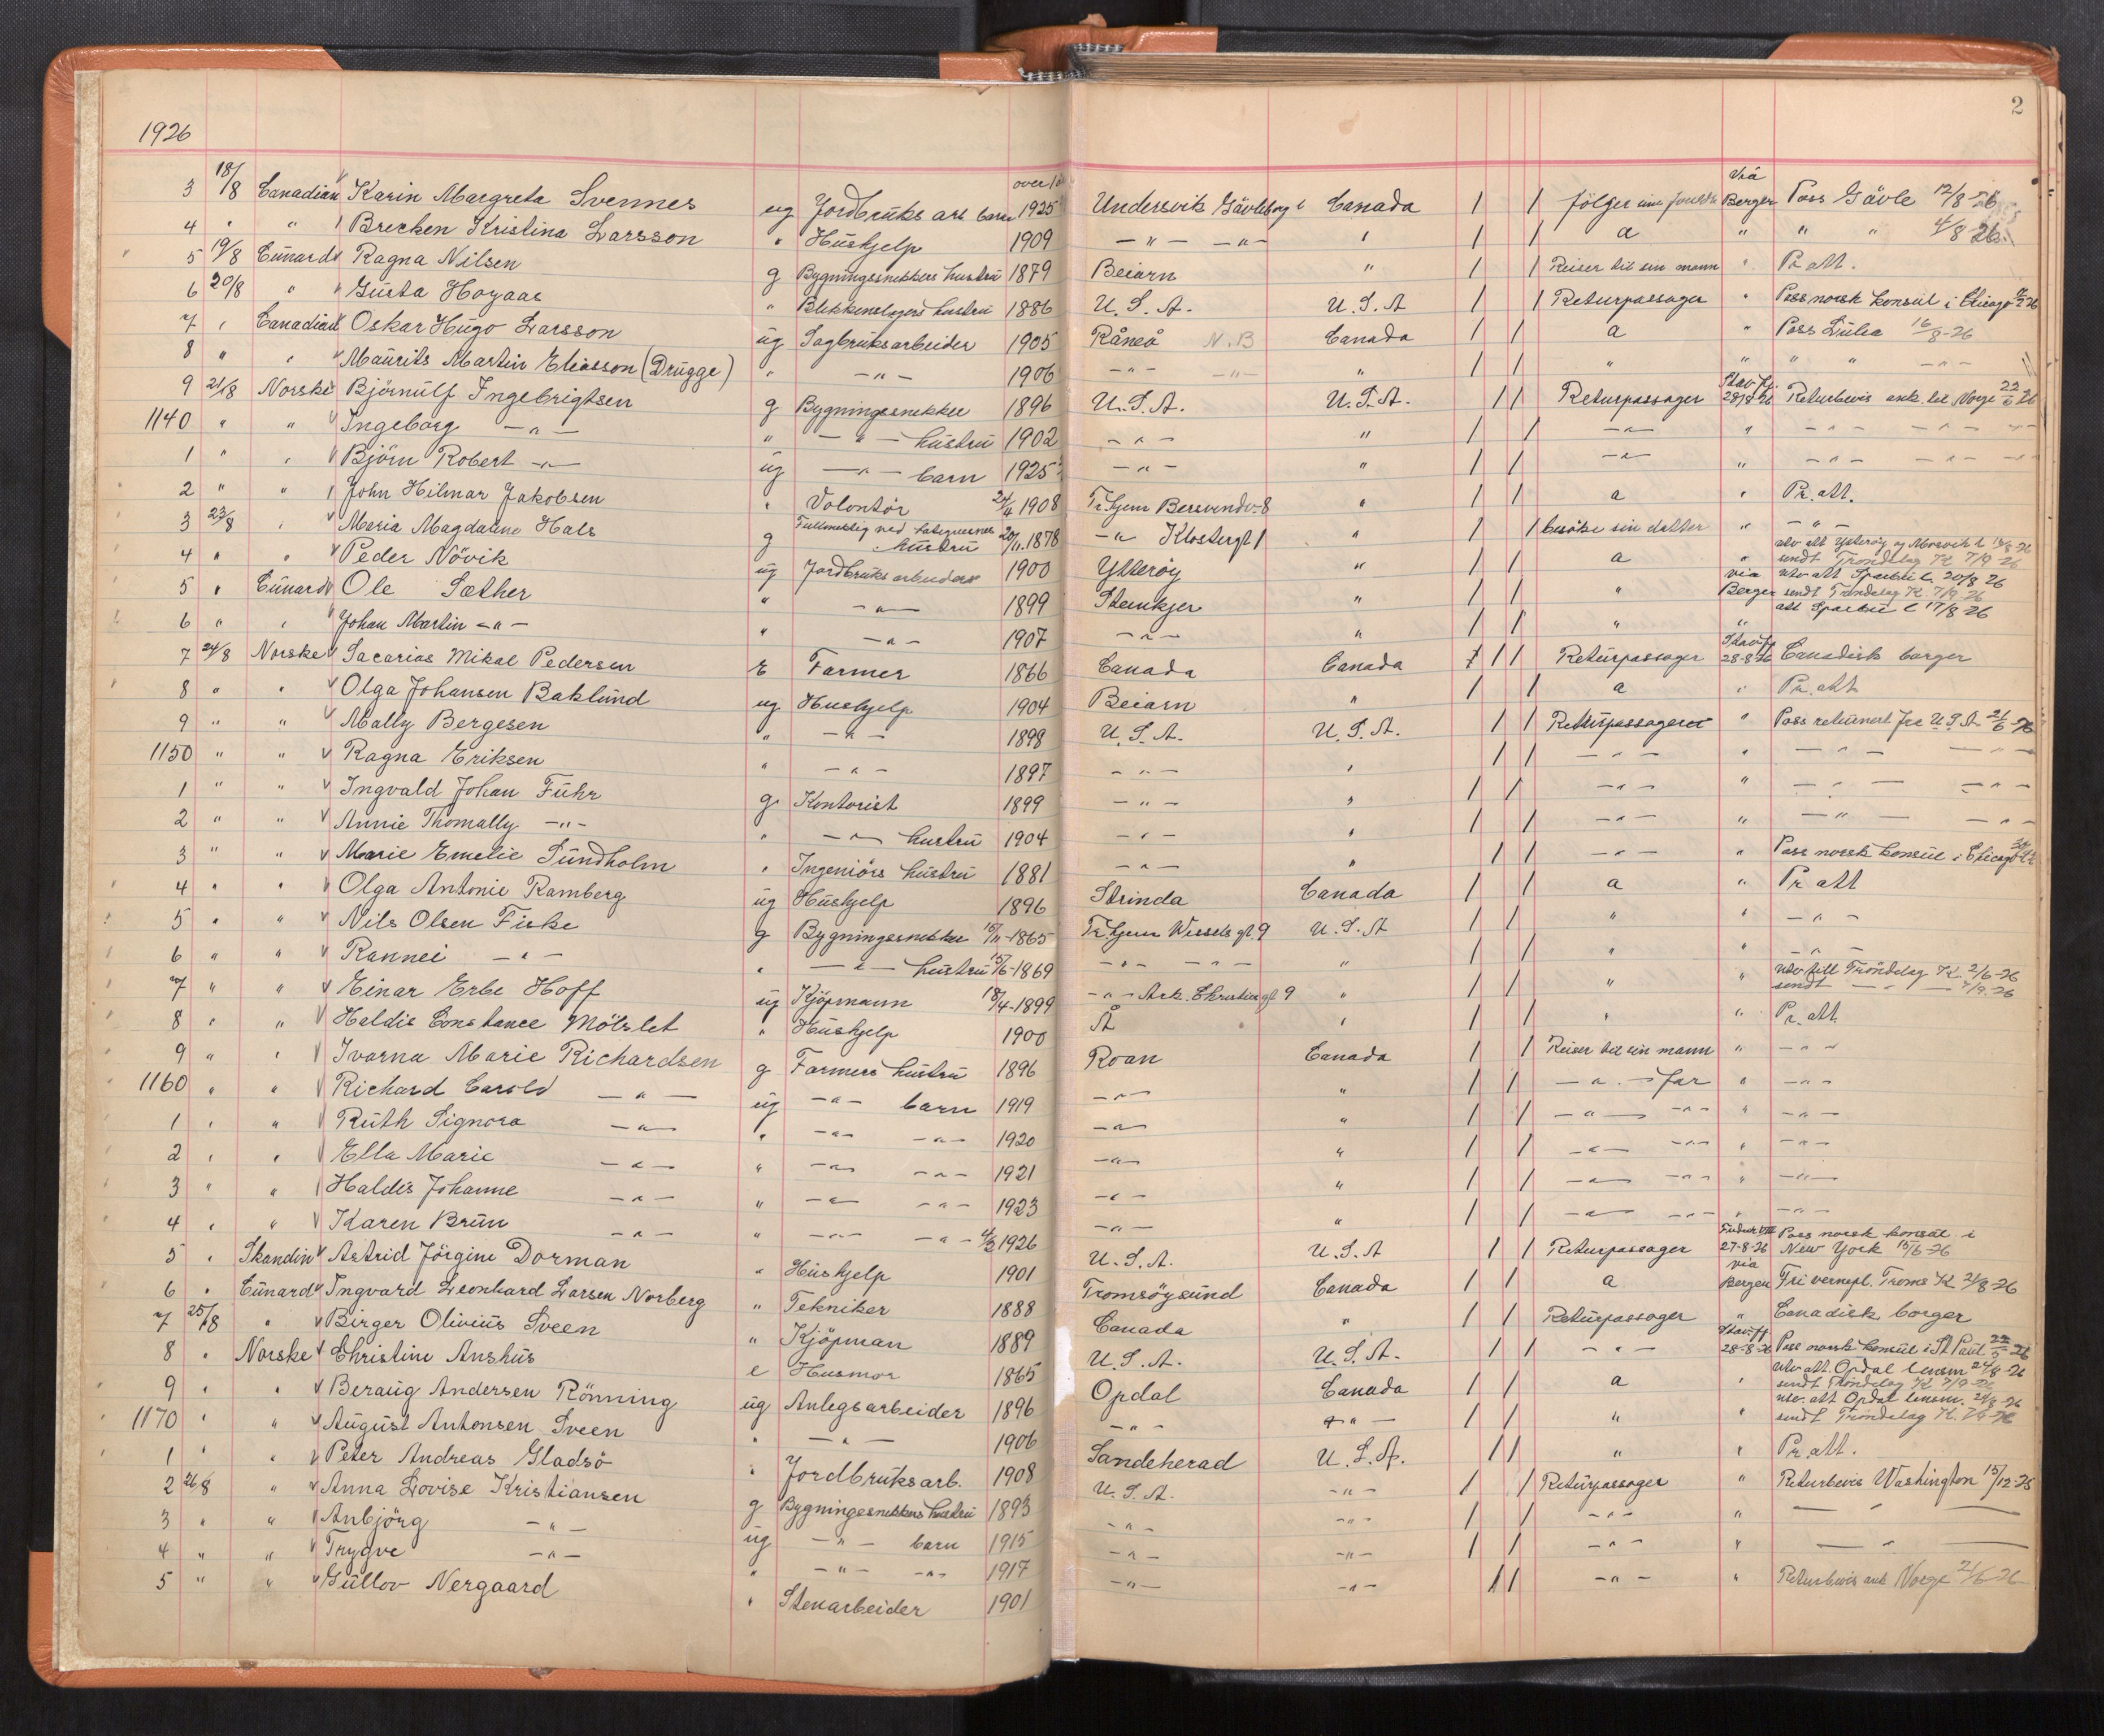 2
1926
3 18/8 Canadian Karin Margreta Svennes ug Jordbruks arb barn over 1 1925 Undersvik Gävleborg l Canada 1 1 følger sine Via Bergen Pass Gävle 12/8-26
4 " " Brecken Kristina Larsson " Hushjelp 1909 -"- -"- " 1 1 a " " " 4/8 26
5 19/8 Cunard Ragna Nilsen g Bygningssnekkers hustru 1879 Beiarn " 1 1 Reiser til sin mann " Pr att.
6 20/8 " Gusta Hoyaas " Blikkenslagers hustru 1886 U.S.A. U.S.A 1 1 Returpassager " Pass norsk konsul i Chicago
7 " Canadian Oskar Hugo Larsson ug Sagbruksarbeider 1905 Råneå N.B Canada 1 1 a " Pass Luleå 16/8-26
8 " " Maurits Martin Eliasson (Drugge) " -"- 1906 -"- -"- " 1 1 " " " " -"-
9 21/8 Norske Björnulf Ingebrigtsen g Bygningssnekker 1896 U.S.A. U.S.A. 1 1 Returpassager Stav.fj. 28/8-26 Returbevis ank. til Norge 22/6 26
1140 " " Ingeborg -"- " -"- hustru 1902 -"- " 1 1 -"- " -"- -"- -"-
1 " " Björn Robert -"- ug -"- barn 1925 -"- " 1 1 -"- " -"- -"- -"-
2 " " John Hilmar Jakobsen " Volontör 24/4 1908 Tr.hjem Bersvendv-8 " 1 1 a " Pr. att.
3 23/8 " Maria Magdalene Hals g Fullmektig ved hustru 20/11.1878 -"- Klostergt 1 " 1 1 besöke sin datter " -"-
4 " " Peder Növik ug Jordbruksarbeider 1900 Ytteroy " 1 1 a " utv att Ytteröy og Mosvik l 18/8-26 sendt Tröndelag K 7/9 26
5 " Cunard Ole Sæther " -"- 1899 Steinkjer " 1 1 " via Bergen utv att Sparbu l. 20/8 26 sendt Tröndelag K 7/9-26
6 " " Johan Martin -"- " -"- 1907 -"- " 1 1 " " att Sparbu l 17/8-26
7 24/8 Norske Sacarias Mikal Pedersen E Farmer 1866 Canada Canada 1 1 1 Returpassager Stav.fj 28-8-26 Canadisk borger
8 " " Olga Johansen Baklund ug Hushjelp 1904 Beiarn " 1 1 a " Pr. att
9 " " Mally Bergesen " -"- 1898 U.S.A. U.S.A. 1 1 Returpassager " Pass returnert fra U.S.A. 21/6-26
1150 " " Ragna Eriksen " -"- 1897 -"- " 1 1 -"- " -"- -"-
1 " " Ingvald Johan Fuhr g Kontorist 1899 -"- " 1 1 -"- " -"- -"-
2 " " Annie Thomally -"- " -"- hustru 1904 -"- " 1 1 -"- " -"- -"-
3 " " Marie Emelie Sundholm " Ingeniörs hustru 1881 -"- " 1 1 -"- " Pass norsk konsul i Chicago
4 " " Olga Antonie Ramberg ug Hushjelp 1896 Strinda Canada 1 1 a " Pr att
5 " " Nils Olsen Fiske g Bygningssnekker 15/11-1865 Tr.hjem Wessels gt. 9 U.S.A 1 1 " " -"-
6 " " Rannei -"- " -"- hustru 15/6-1869 -"- -"- " 1 1 " " -"-
7 " " Einar Erbe Hoff ug Kjöpmann 18/4-1899 -"- Ark. Christies gt 9 " 1 1 " " Utv till Tröndelag K. 2/6-26 sendt -"- 7/9-26
8 " " Haldis Constance Mölslet " Hushjelp 1900 Å " 1 1 " " Pr. att
9 " " Ivarna Marie Richardsen g Farmers hustru 1896 Roan Canada 1 1 Reiser til sin mann " -"-
1160 " " Richard Carold -"- ug -"- barn 1919 -"- " 1 1 -"- far " -"-
1 " " Ruth Signora -"- " -"- -"- 1920 -"- " 1 1 -"- -"- " -"-
2 " " Ella Marie -"- " -"- -"- 1921 -"- " 1 1 -"- -"- " -"-
3 " " Haldis Johanne -"- " -"- -"- 1923 -"- " 1 1 -"- -"- " -"-
4 " " Karen Brun -"- " -"- -"- 4/2 1926 -"- " 1 1 -"- -"- " -"-
5 " Skandin Astrid Jörgine Dorman " Hushjelp 1901 U.S.A. U.S.A 1 1 Returpassager 27-8-26 Pass norsk konsul i New York 15/6-26
6 " Cunard Ingvard Leonhard Larsen Norberg " Tekniker 1888 Tromsöysund Canada 1 1 a via Bergen Fri vernepl. Troms K 21/8-26
7 25/8 " Birger Olivius Sveen " Kjöpman 1889 Canada " 1 1 Returpassager " Canadisk borger
8 " Norske Christine Anshus e Husmor 1865 U.S.A. U.S.A. 1 1 -"- Stav.fj 28-8-26 Pass norsk konsul i St Paul 22/5-26
9 " " Beraug Andersen Rönning ug Anlegsarbeider 1896 Opdal Canada 1 1 a " utv att. Opdal lensm 24/8-26 sendt Tröndelag K 7/9-26
1170 " " August Antonsen Sveen " -"- 1906 -"- -"- 1 1 " " utv. att Opdal lensm. 24/8-26 sendt Tröndelag K. 7/9-26
1 " " Peter Andreas Gladsö " Jordbruksarb. 1908 Sandeherad U.S.A. 1 1 " " Pr. att.
2 26/8 " Anna Lovise Kristiansen g Bygningssnekkers hustru 1893 U.S.A. -"- 1 1 Returpassager " Returbevis Washington 15/12-25
3 " " Anbjörg -"- ug -"- barn 1915 -"- -"- 1 1 -"- " -"-
4 " " Trygve -"- " -"- -"- 1917 -"- -"- 1 1 -"- " -"-
5 " " Gullov Nergaard " Stenarbeider 1901 -"- -"- 1 1 -"- " Returbevis ank Norge 21/6-26